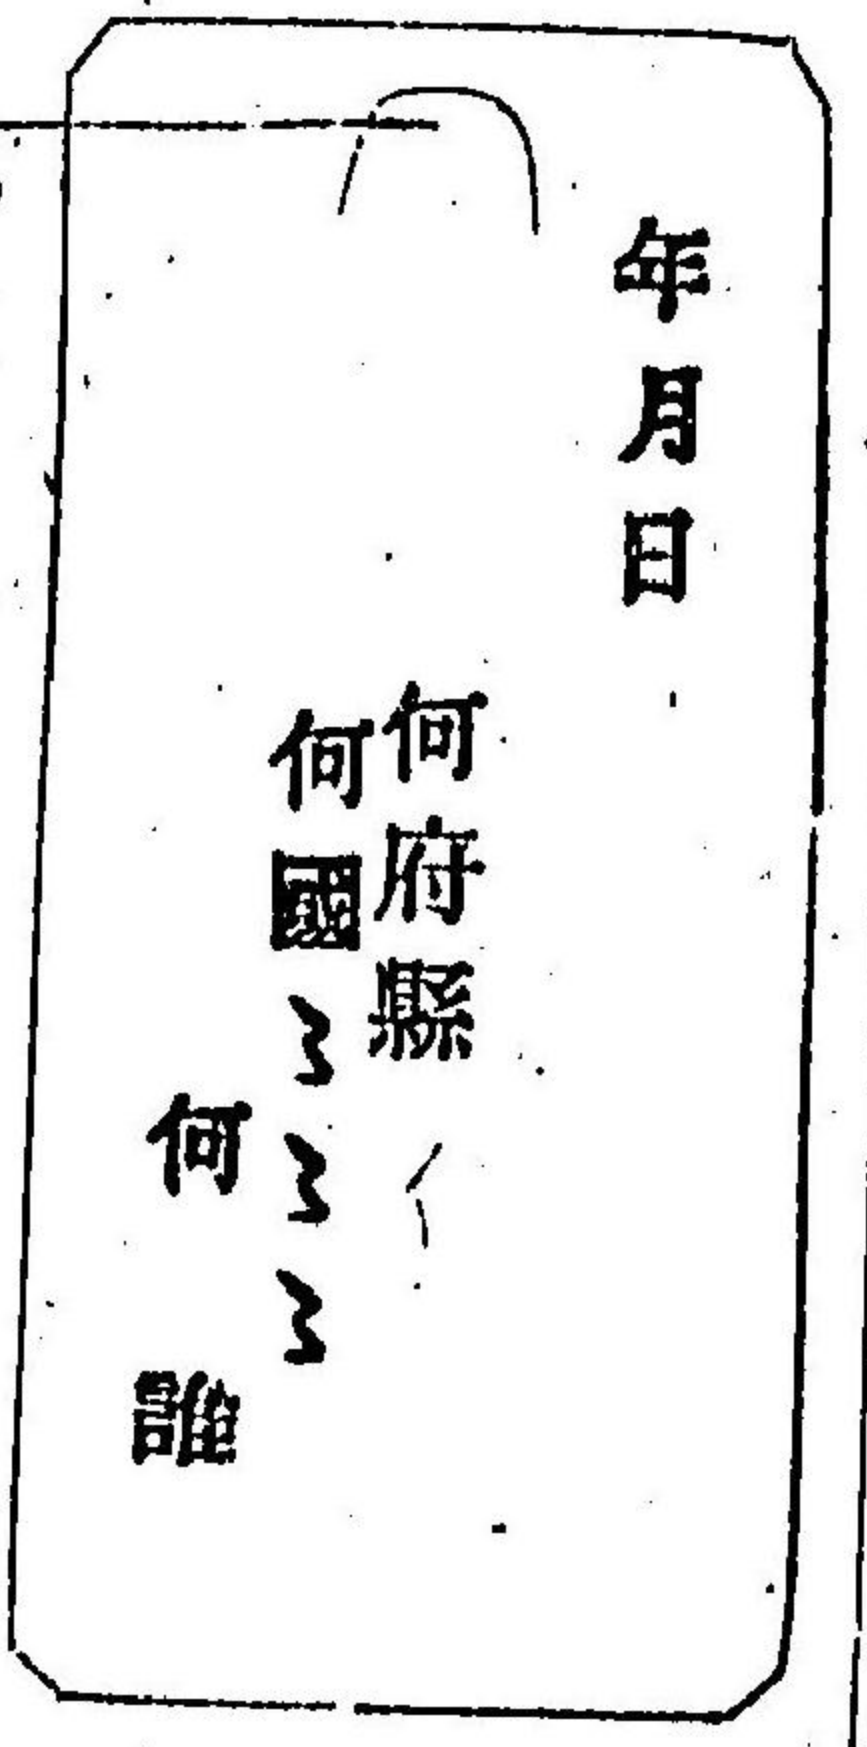 年月日
何府縣
何國〻〻〻
何誰